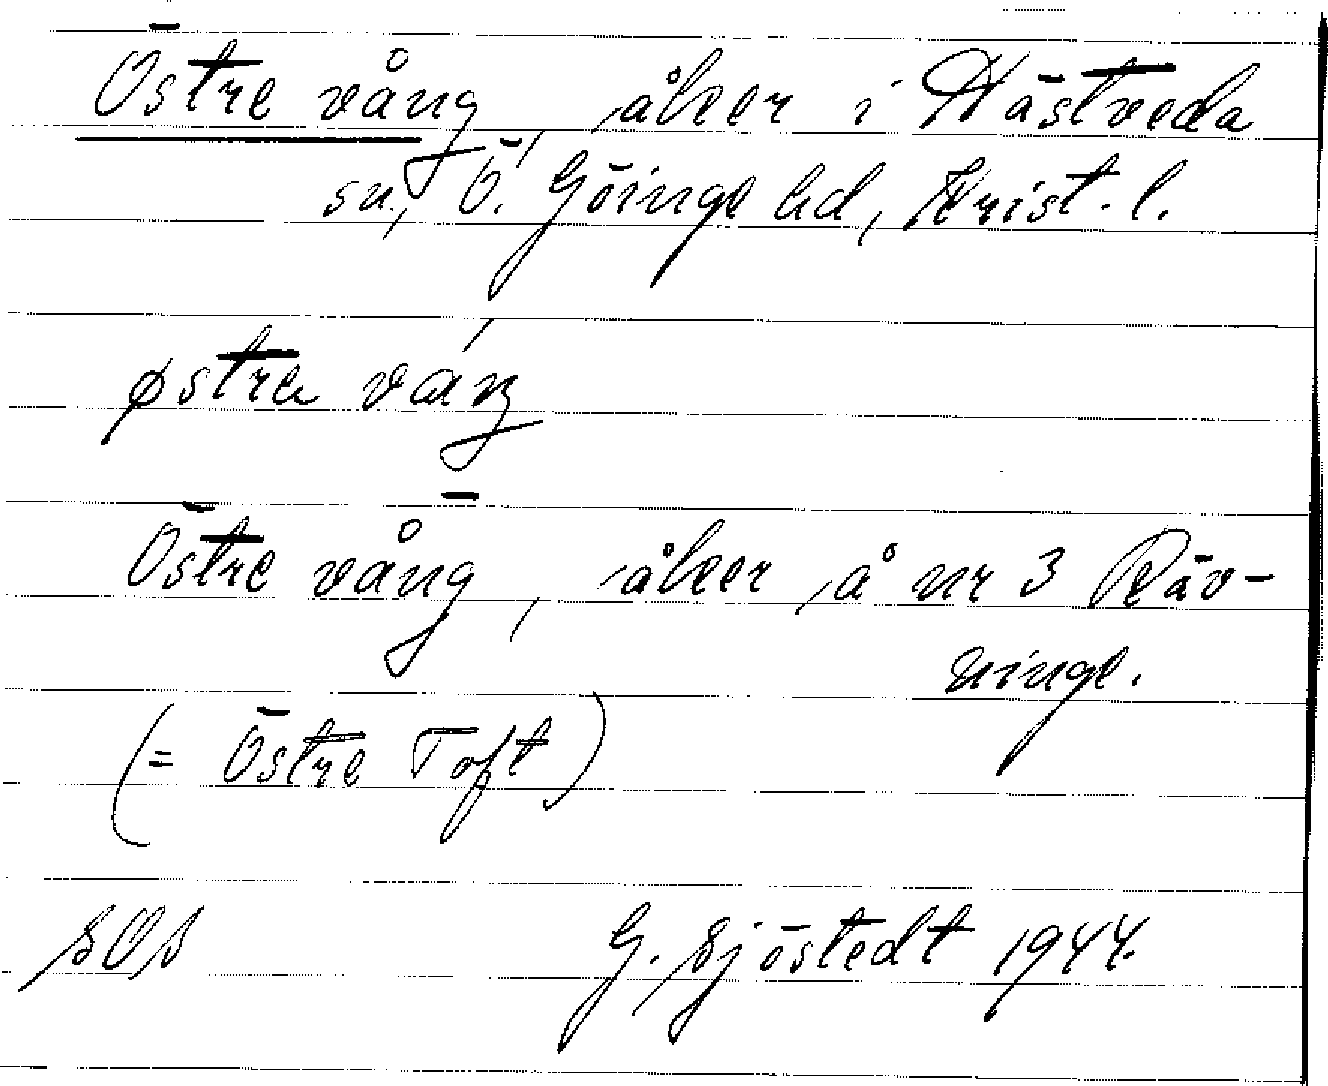 Östre vång, åker i Hästveda
sn, Ö. Göinge hd, Krist. l.
østra váŋ
Östre vång, åker å nr 3 Räv-
ninge.
(= Östre Toft)
G. Sjöstedt 1944.